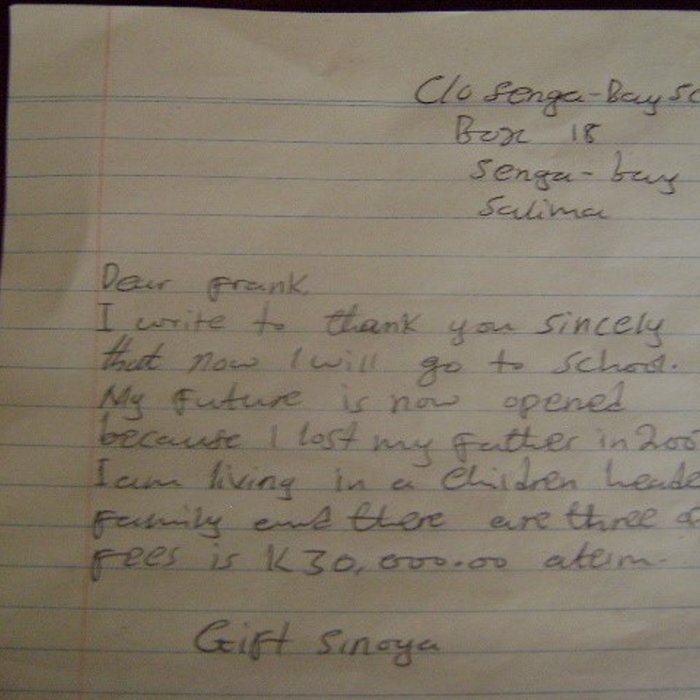 C/o Senga-Bay Sc
Box 18
Senga-bay
Salima
Dear Frank
I write to thank you sincely
that now I will go to school.
My future is now opened
because I lost my father in 200
I am living in a children heade
family and there are three o
fees is K30,000.00 aterm.
Gift Sinoya